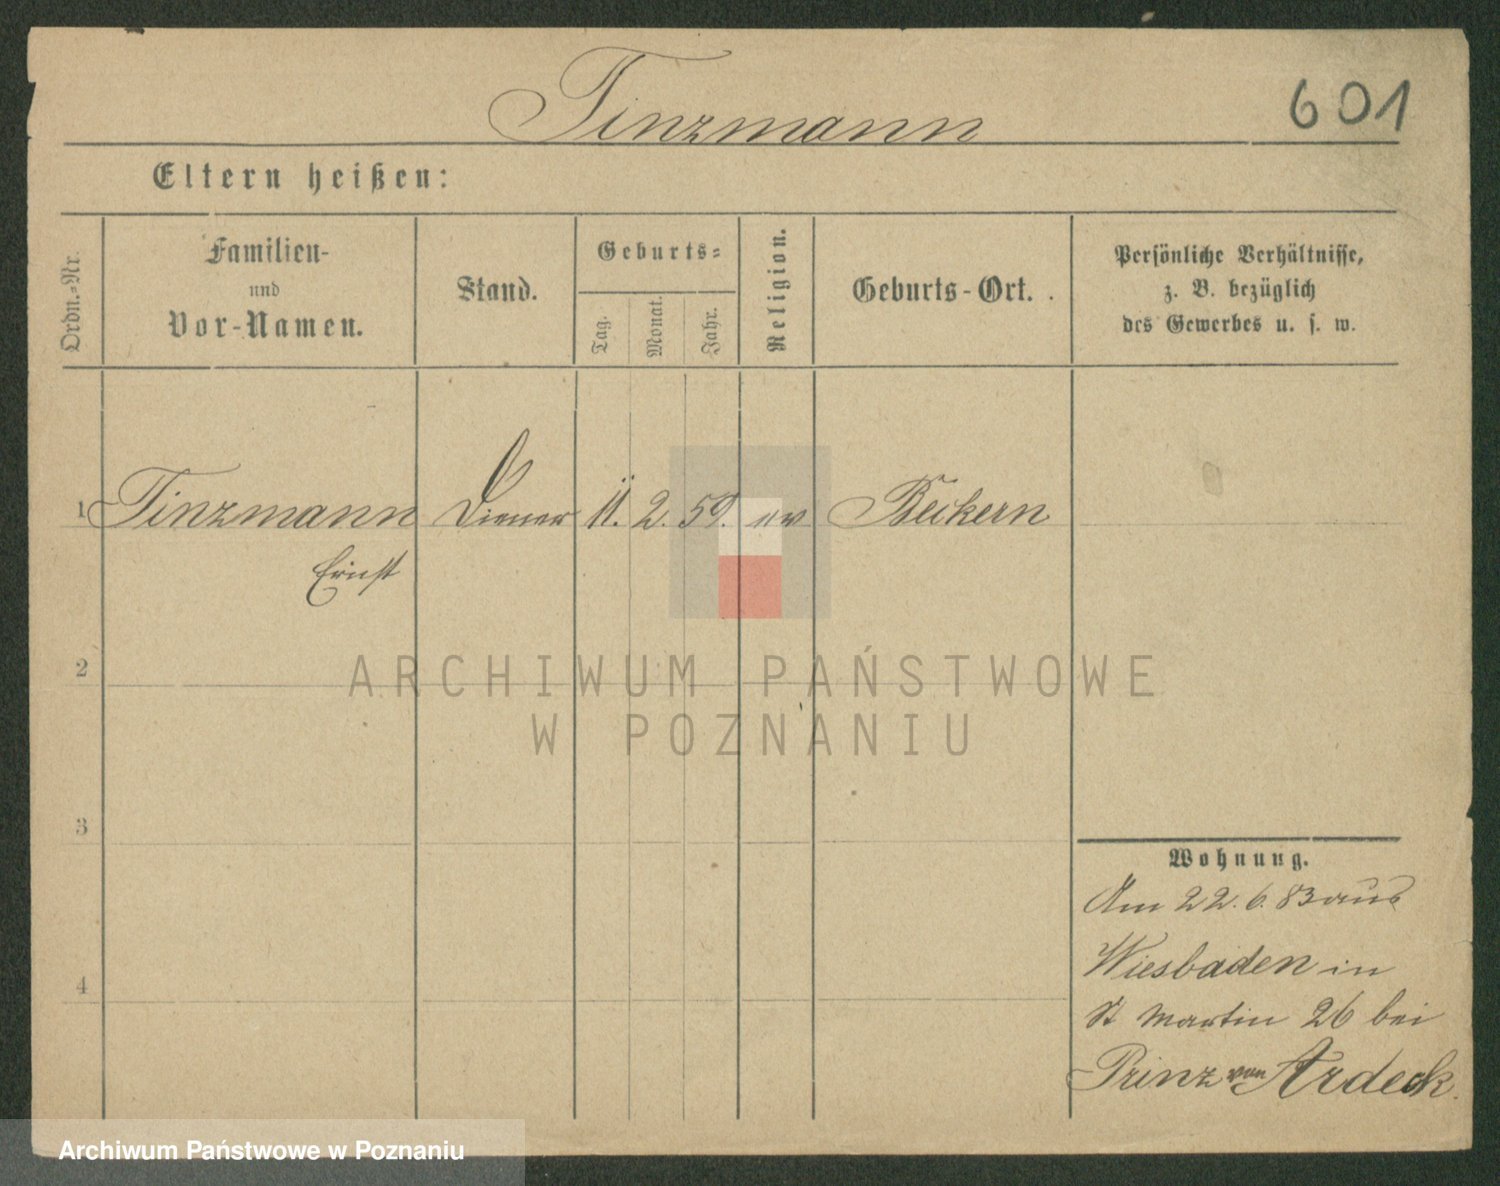 Tinzmann
601
Eltern heißen:
Ordn.-Nr.
Familien-
und
Vor-Namen.
Stand.
Geburts-
Tag.
Monat.
Jahr.
Religion.
Geburts-Ort.
Persönliche Verhältnisse,
z. B. bezüglich
des Gewerbes u. s. w.
1 Tinzmann Diener 11. 2. 59. ev Beikern
Ernst
2
ARCHIWUM PAŃSTWOWE
W POZNANIU
3
Wohnung.
Am 22. 6. 83 aus
Wiesbaden in
4
St Martin 26 bei
Prinz von Ardeck.
Archiwum Państwowe w Poznaniu